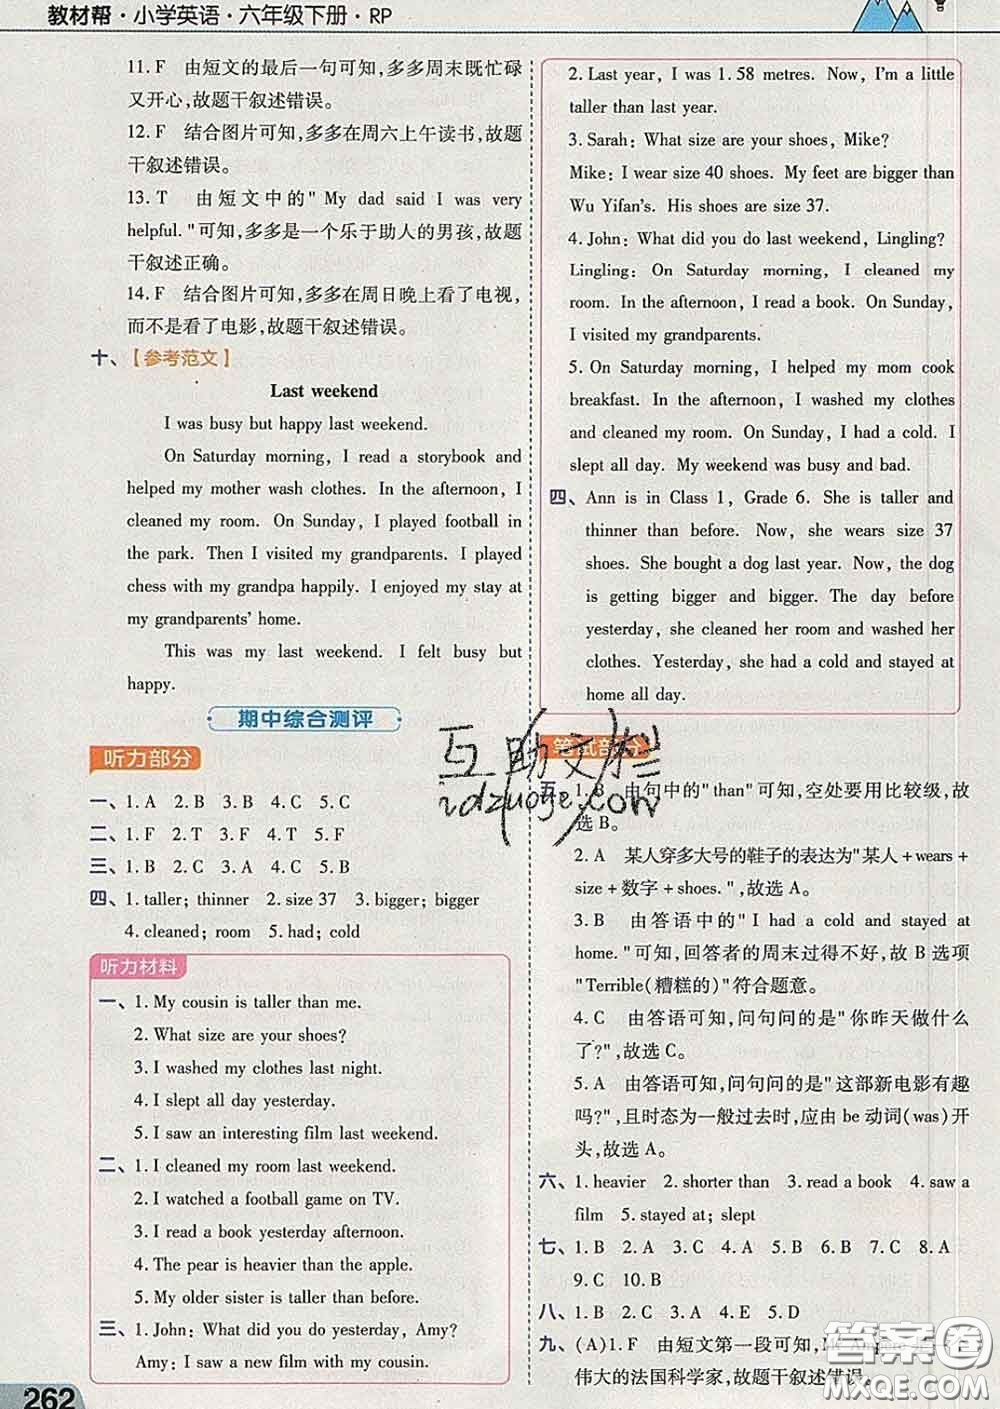 教材帮·小学英语·六年级下册·RP
11. F 由短文的最后一句可知,多多周末既忙碌
又开心,故题干叙述错误。
12. F 结合图片可知,多多在周六上午读书,故题
干叙述错误。
13. T 由短文中的"My dad said I was very
helpful."可知,多多是一个乐于助人的男孩,故题
干叙述正确。
14. F 结合图片可知,多多在周日晚上看了电视,
而不是看了电影,故题干叙述错误。
十、【参考范文】
Last weekend
I was busy but happy last weekend.
On Saturday morning, I read a storybook and
helped my mother wash clothes. In the afternoon, I
cleaned my room. On Sunday, I played football in
the park. Then I visited my grandparents. I played
chess with my grandpa happily. I enjoyed my stay at
my grandparents' home.
This was my last weekend. I felt busy but
happy.
期中综合测评
听力部分
一、1. A 2. B 3. B 4. C 5. C
二、1. F 2. T 3. F 4. T 5. F
三、1. B 2. C 3. A 4. C 5. B
四、1. taller; thinner 2. size 37 3. bigger; bigger
4. cleaned; room 5. had; cold
听力材料
一、1. My cousin is taller than me.
2. What size are your shoes?
3. I washed my clothes last night.
4. I slept all day yesterday.
5. I saw an interesting film last weekend.
二、1. I cleaned my room last weekend.
2. I watched a football game on TV.
3. I read a book yesterday afternoon.
4. The pear is heavier than the apple.
5. My older sister is taller than before.
三、1. John: What did you do yesterday, Amy?
Amy: I saw a new film with my cousin.
262
2. Last year, I was 1.58 metres. Now, I'm a little
taller than last year.
3. Sarah: What size are your shoes, Mike?
Mike: I wear size 40 shoes. My feet are bigger than
Wu Yifan's. His shoes are size 37.
4. John: What did you do last weekend, Lingling?
Lingling: On Saturday morning, I cleaned my
room. In the afternoon, I read a book. On Sunday,
I visited my grandparents.
5. On Saturday morning, I helped my mom cook
breakfast. In the afternoon, I washed my clothes
and cleaned my room. On Sunday, I had a cold. I
slept all day. My weekend was busy and bad.
四、Ann is in Class 1, Grade 6. She is taller and
thinner than before. Now, she wears size 37
shoes. She bought a dog last year. Now, the dog
is getting bigger and bigger. The day before
yesterday, she cleaned her room and washed her
clothes. Yesterday, she had a cold and stayed at
home all day.
笔试部分
五、1. B 由句中的"than"可知,空处要用比较级,故
选 B。
2. A 某人穿多大号的鞋子的表达为"某人+wears+
size+数字+shoes.",故选 A。
3. B 由答语中的"I had a cold and stayed at
home."可知,回答者的周末过得不好,故 B 选项
"Terrible(糟糕的)"符合题意。
4. C 由答语可知,问句问的是"你昨天做什么
了?",故选 C。
5. A 由答语可知,问句问的是"这部新电影有趣
吗?",且时态为一般过去时,应由 be 动词(was)开
头,故选 A。
六、1. heavier 2. shorter than 3. read a book 4. saw a
film 5. stayed at; slept
七、1. B 2. A 3. C 4. C 5. A 6. B 7. C 8. A
9. C 10. B
八、1. B 2. C 3. A 4. E 5. D
九、(A)1. F 由短文第一段可知,
伟大的法国科学家,故题干叙述错误。
互助文栏
idzuoye.com
答案卷
MXQE.COM